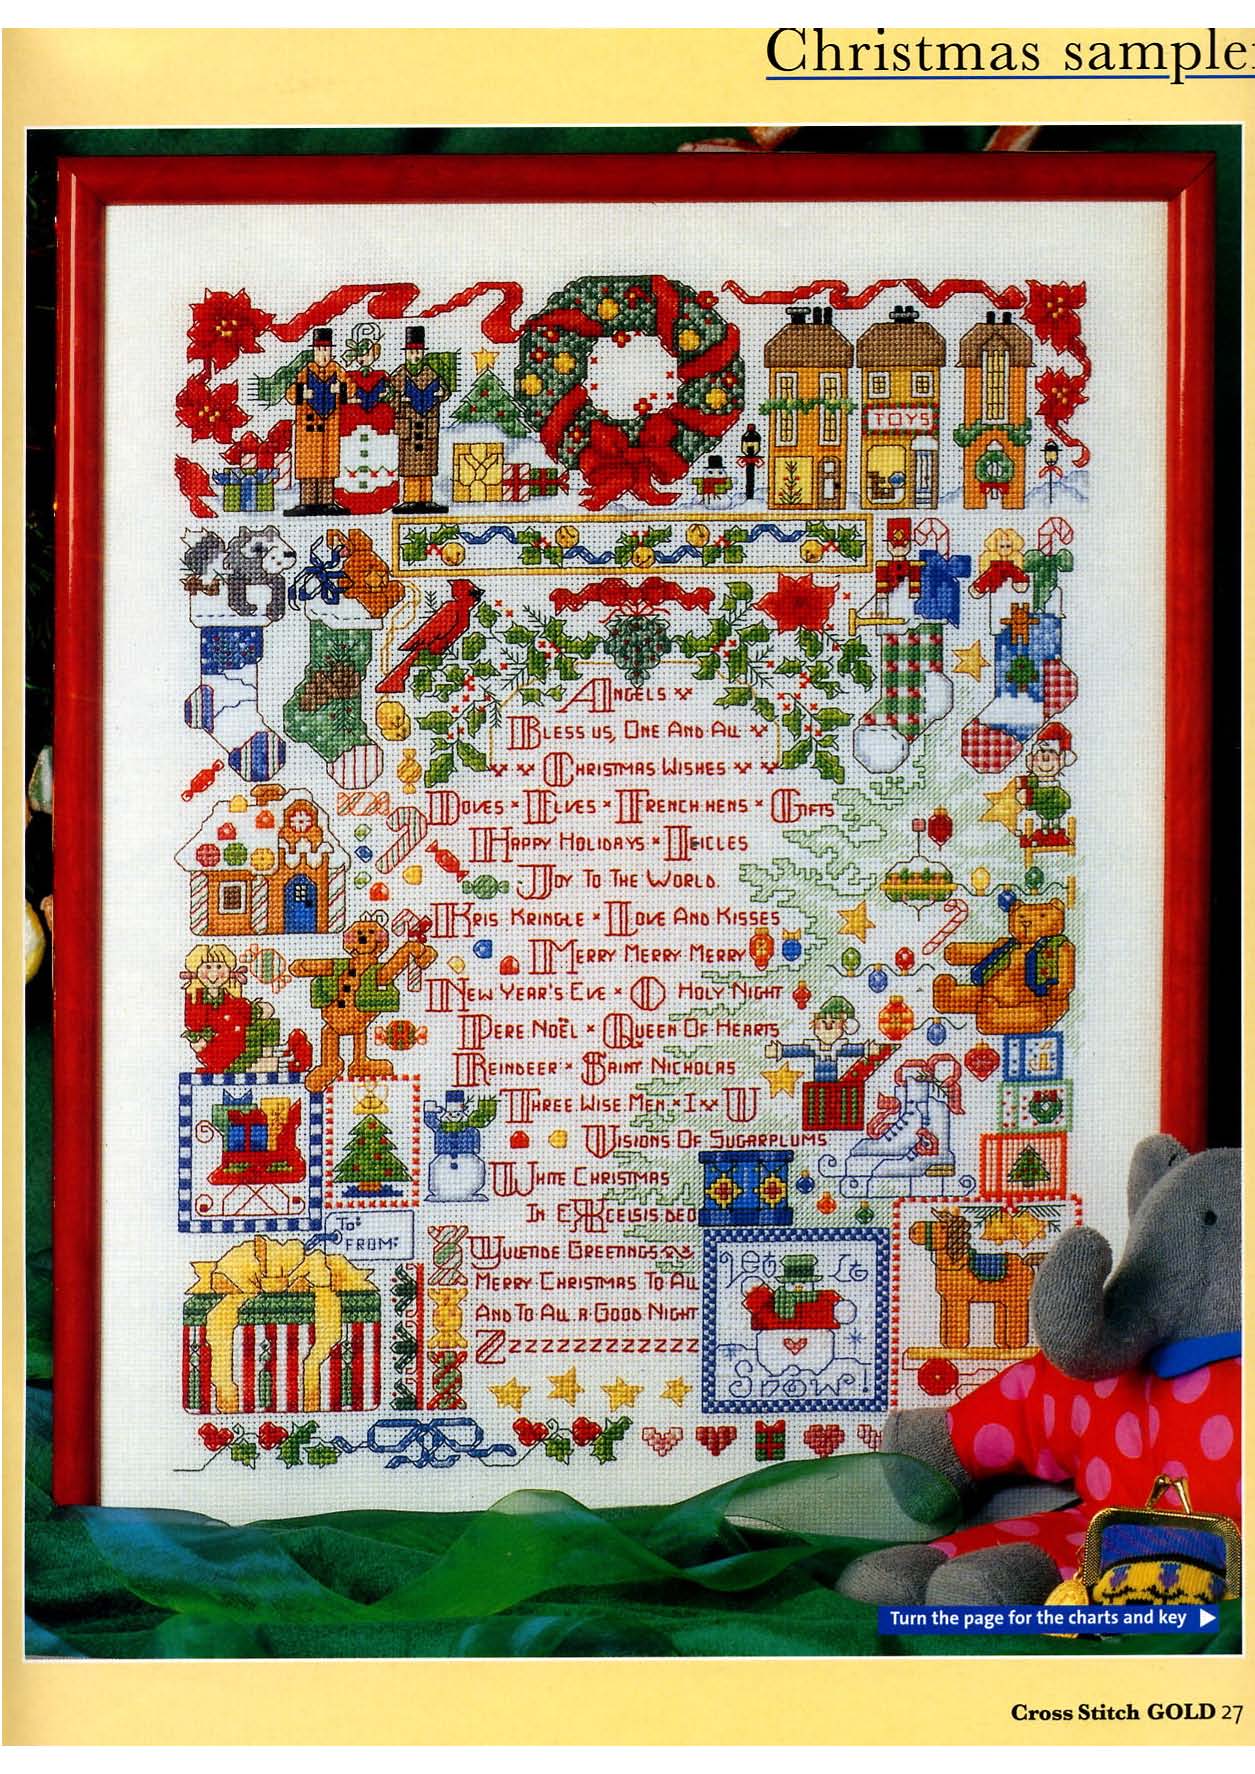 Christmas sampler
TOYS
ANGELS
BLESS US, ONE AND ALL
CHRISTMAS WISHES
DOVES * ELVES * FRENCH HENS * GIFTS
HAPPY HOLIDAYS * ICICLES
JOY TO THE WORLD.
KRIS KRINGLE * LOVE AND KISSES
MERRY MERRY MERRY
NEW YEAR'S EVE * O HOLY NIGHT
PERE NOËL * QUEEN OF HEARTS
REINDEER * SAINT NICHOLAS
THREE WISE MEN * I U
VISIONS OF SUGARPLUMS
WHITE CHRISTMAS
IN EXCELSIS DEO
TO:
FROM:
YULETIDE GREETINGS
MERRY CHRISTMAS TO ALL
AND TO ALL A GOOD NIGHT
Zzzzzzzzzzzzz
Let It
Snow!
Turn the page for the charts and key
Cross Stitch GOLD 27